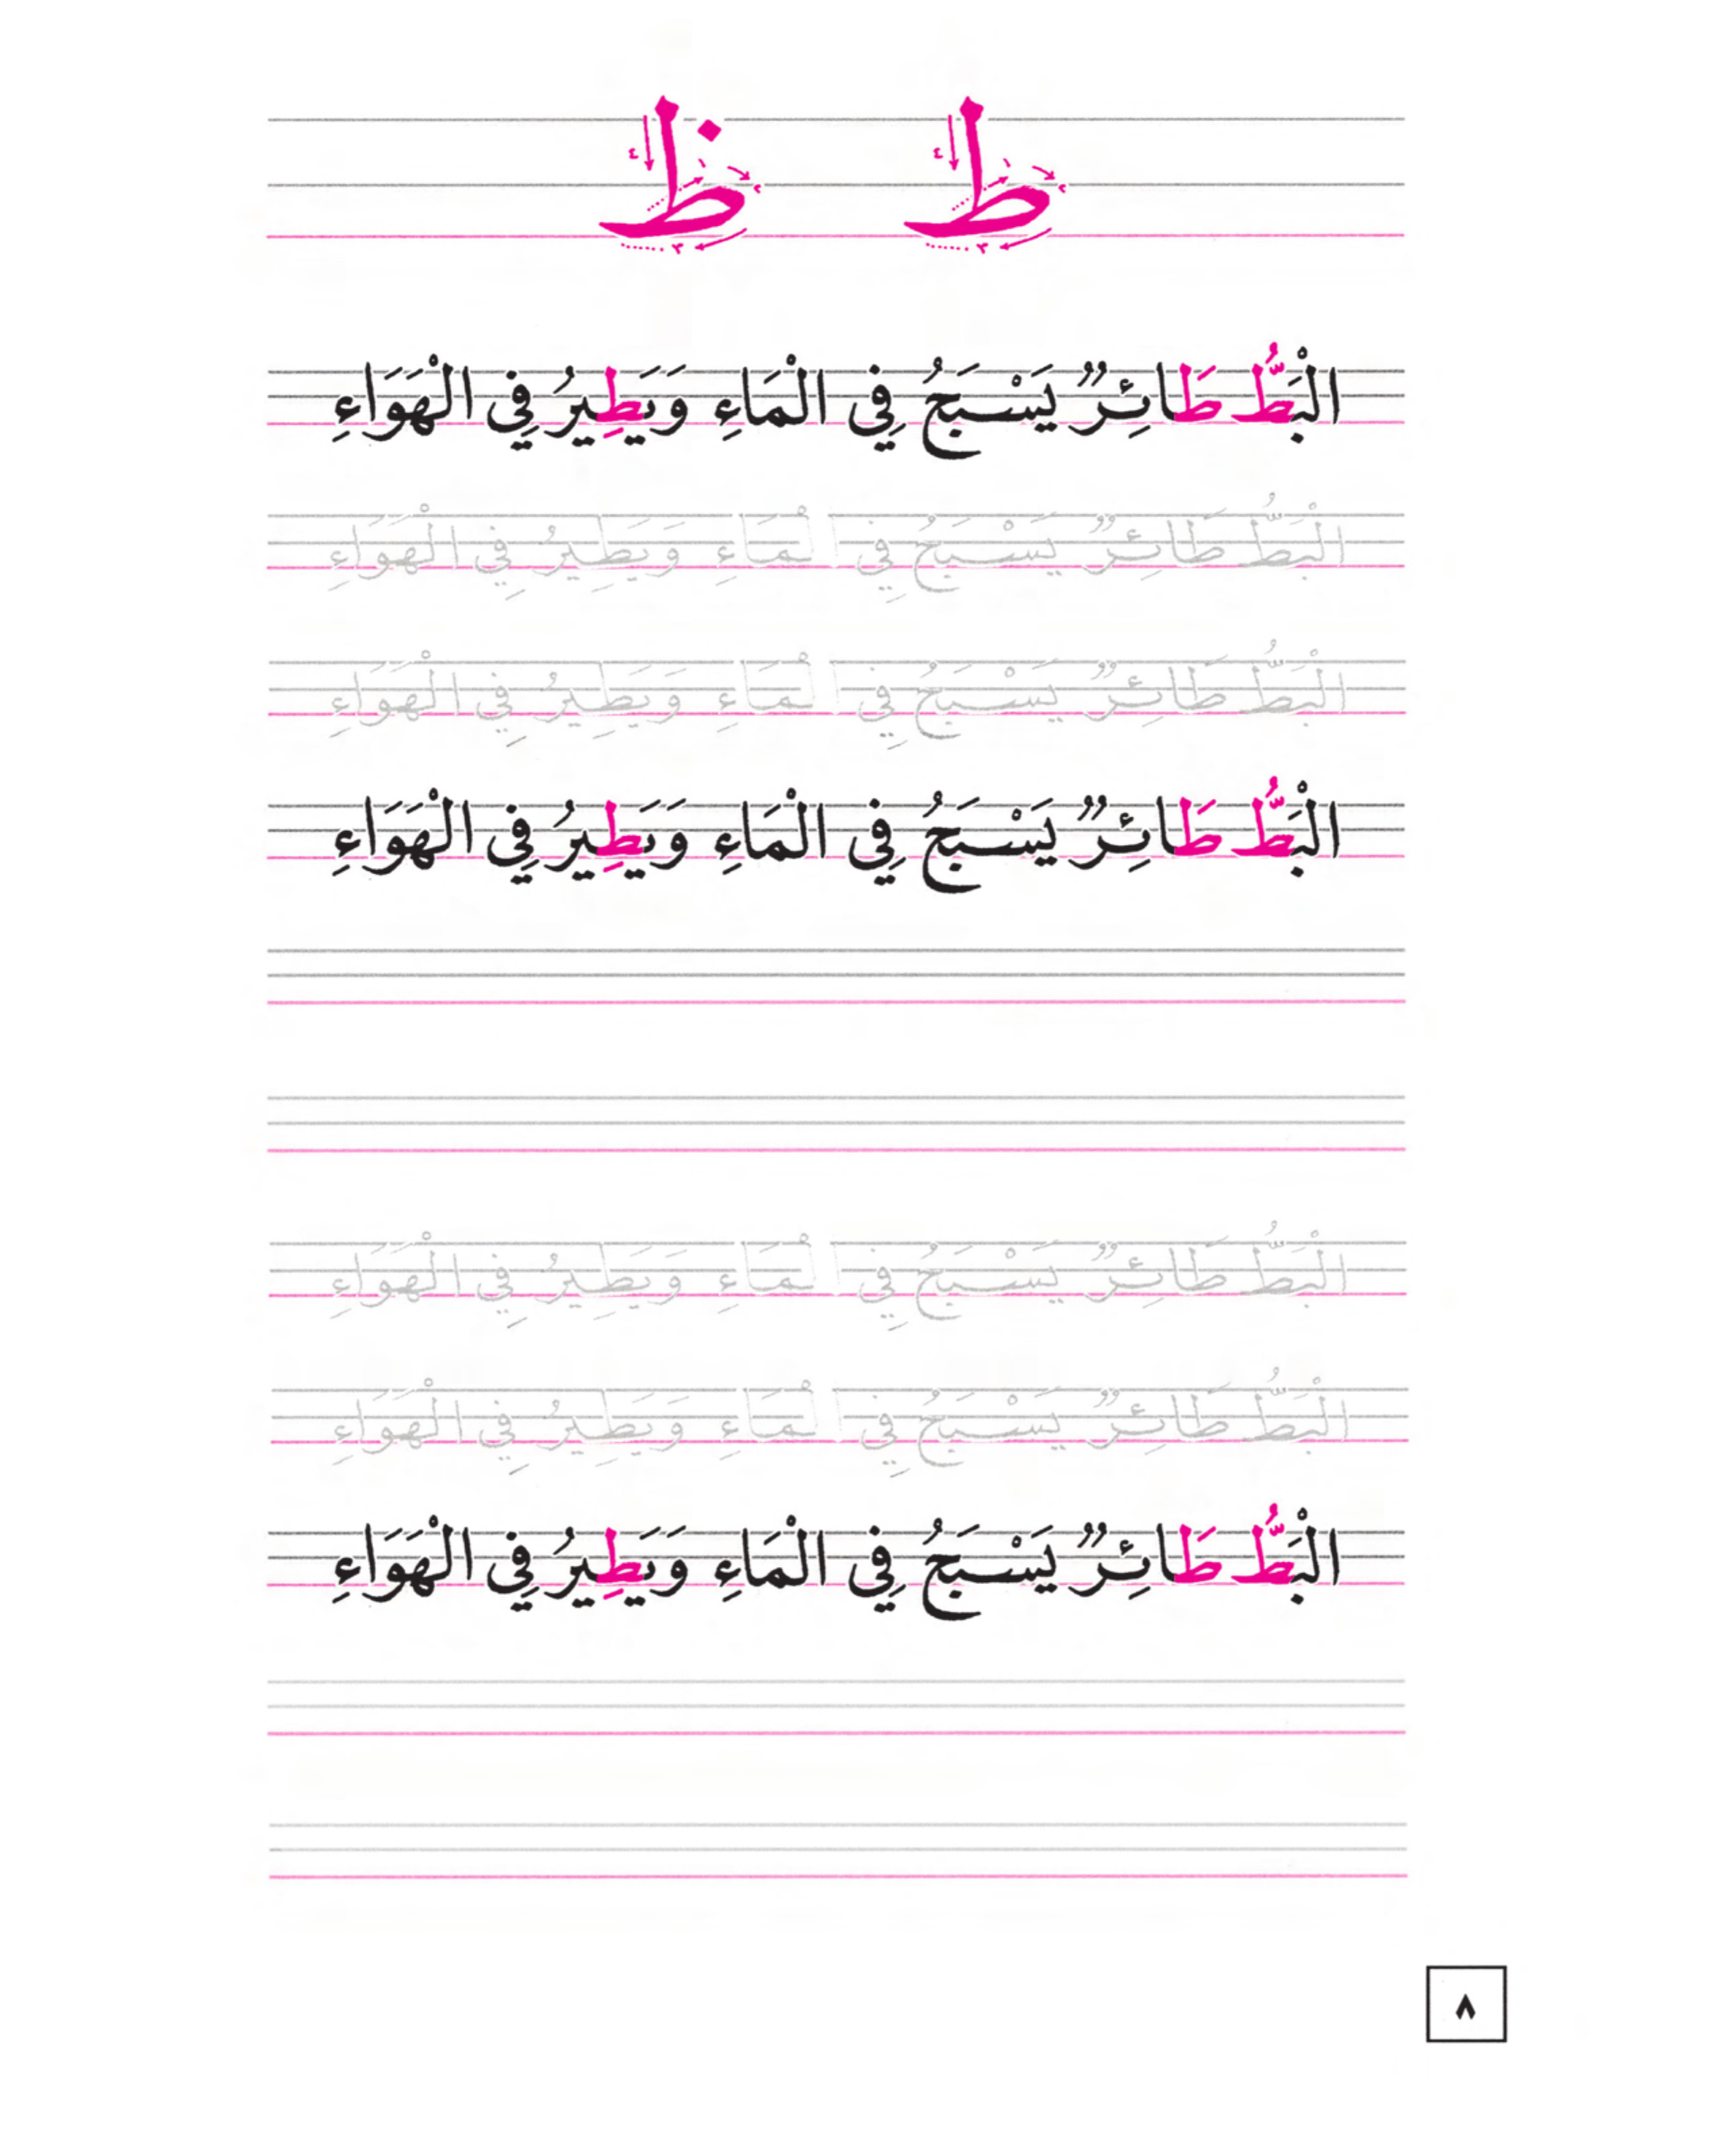 ط ظ
الْبَطُّ طَائِرٌ يَسْبَحُ فِي الْمَاءِ وَيَطِيرُ فِي الْهَوَاءِ
الْبَطُّ طَائِرٌ يَسْبَحُ فِي الْمَاءِ وَيَطِيرُ فِي الْهَوَاءِ
الْبَطُّ طَائِرٌ يَسْبَحُ فِي الْمَاءِ وَيَطِيرُ فِي الْهَوَاءِ
الْبَطُّ طَائِرٌ يَسْبَحُ فِي الْمَاءِ وَيَطِيرُ فِي الْهَوَاءِ
الْبَطُّ طَائِرٌ يَسْبَحُ فِي الْمَاءِ وَيَطِيرُ فِي الْهَوَاءِ
الْبَطُّ طَائِرٌ يَسْبَحُ فِي الْمَاءِ وَيَطِيرُ فِي الْهَوَاءِ
الْبَطُّ طَائِرٌ يَسْبَحُ فِي الْمَاءِ وَيَطِيرُ فِي الْهَوَاءِ
٨